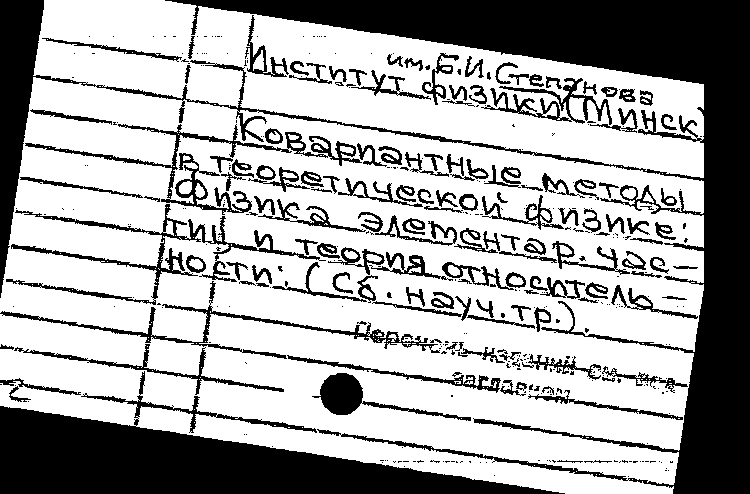 им. Б.И. Степанова
Институт физики (Минск)
Ковариантные методы
в теоретической физике:
Физика элементар. час-
тиц и теория относитель-
ности: (Сб. науч. тр.).
Перечень изданий см. под
заглавием
2